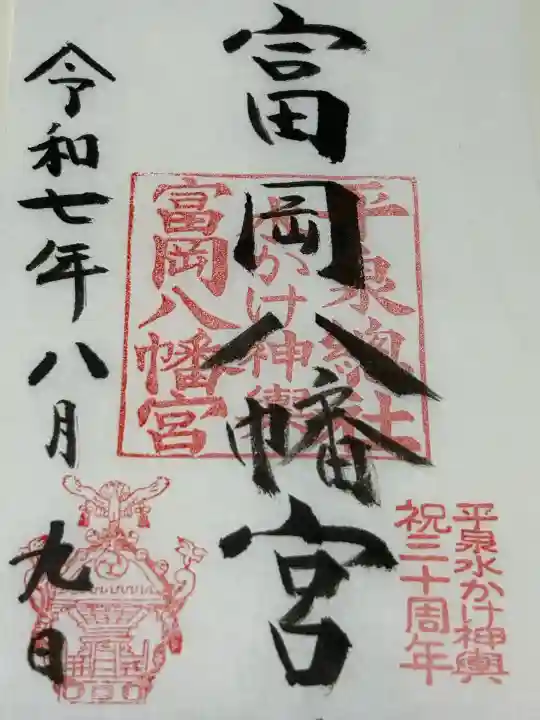 富岡八幡宮
平泉總社
水かけ神輿
富岡八幡宮
平泉水かけ神輿
祝三十周年
令和七年八月九日